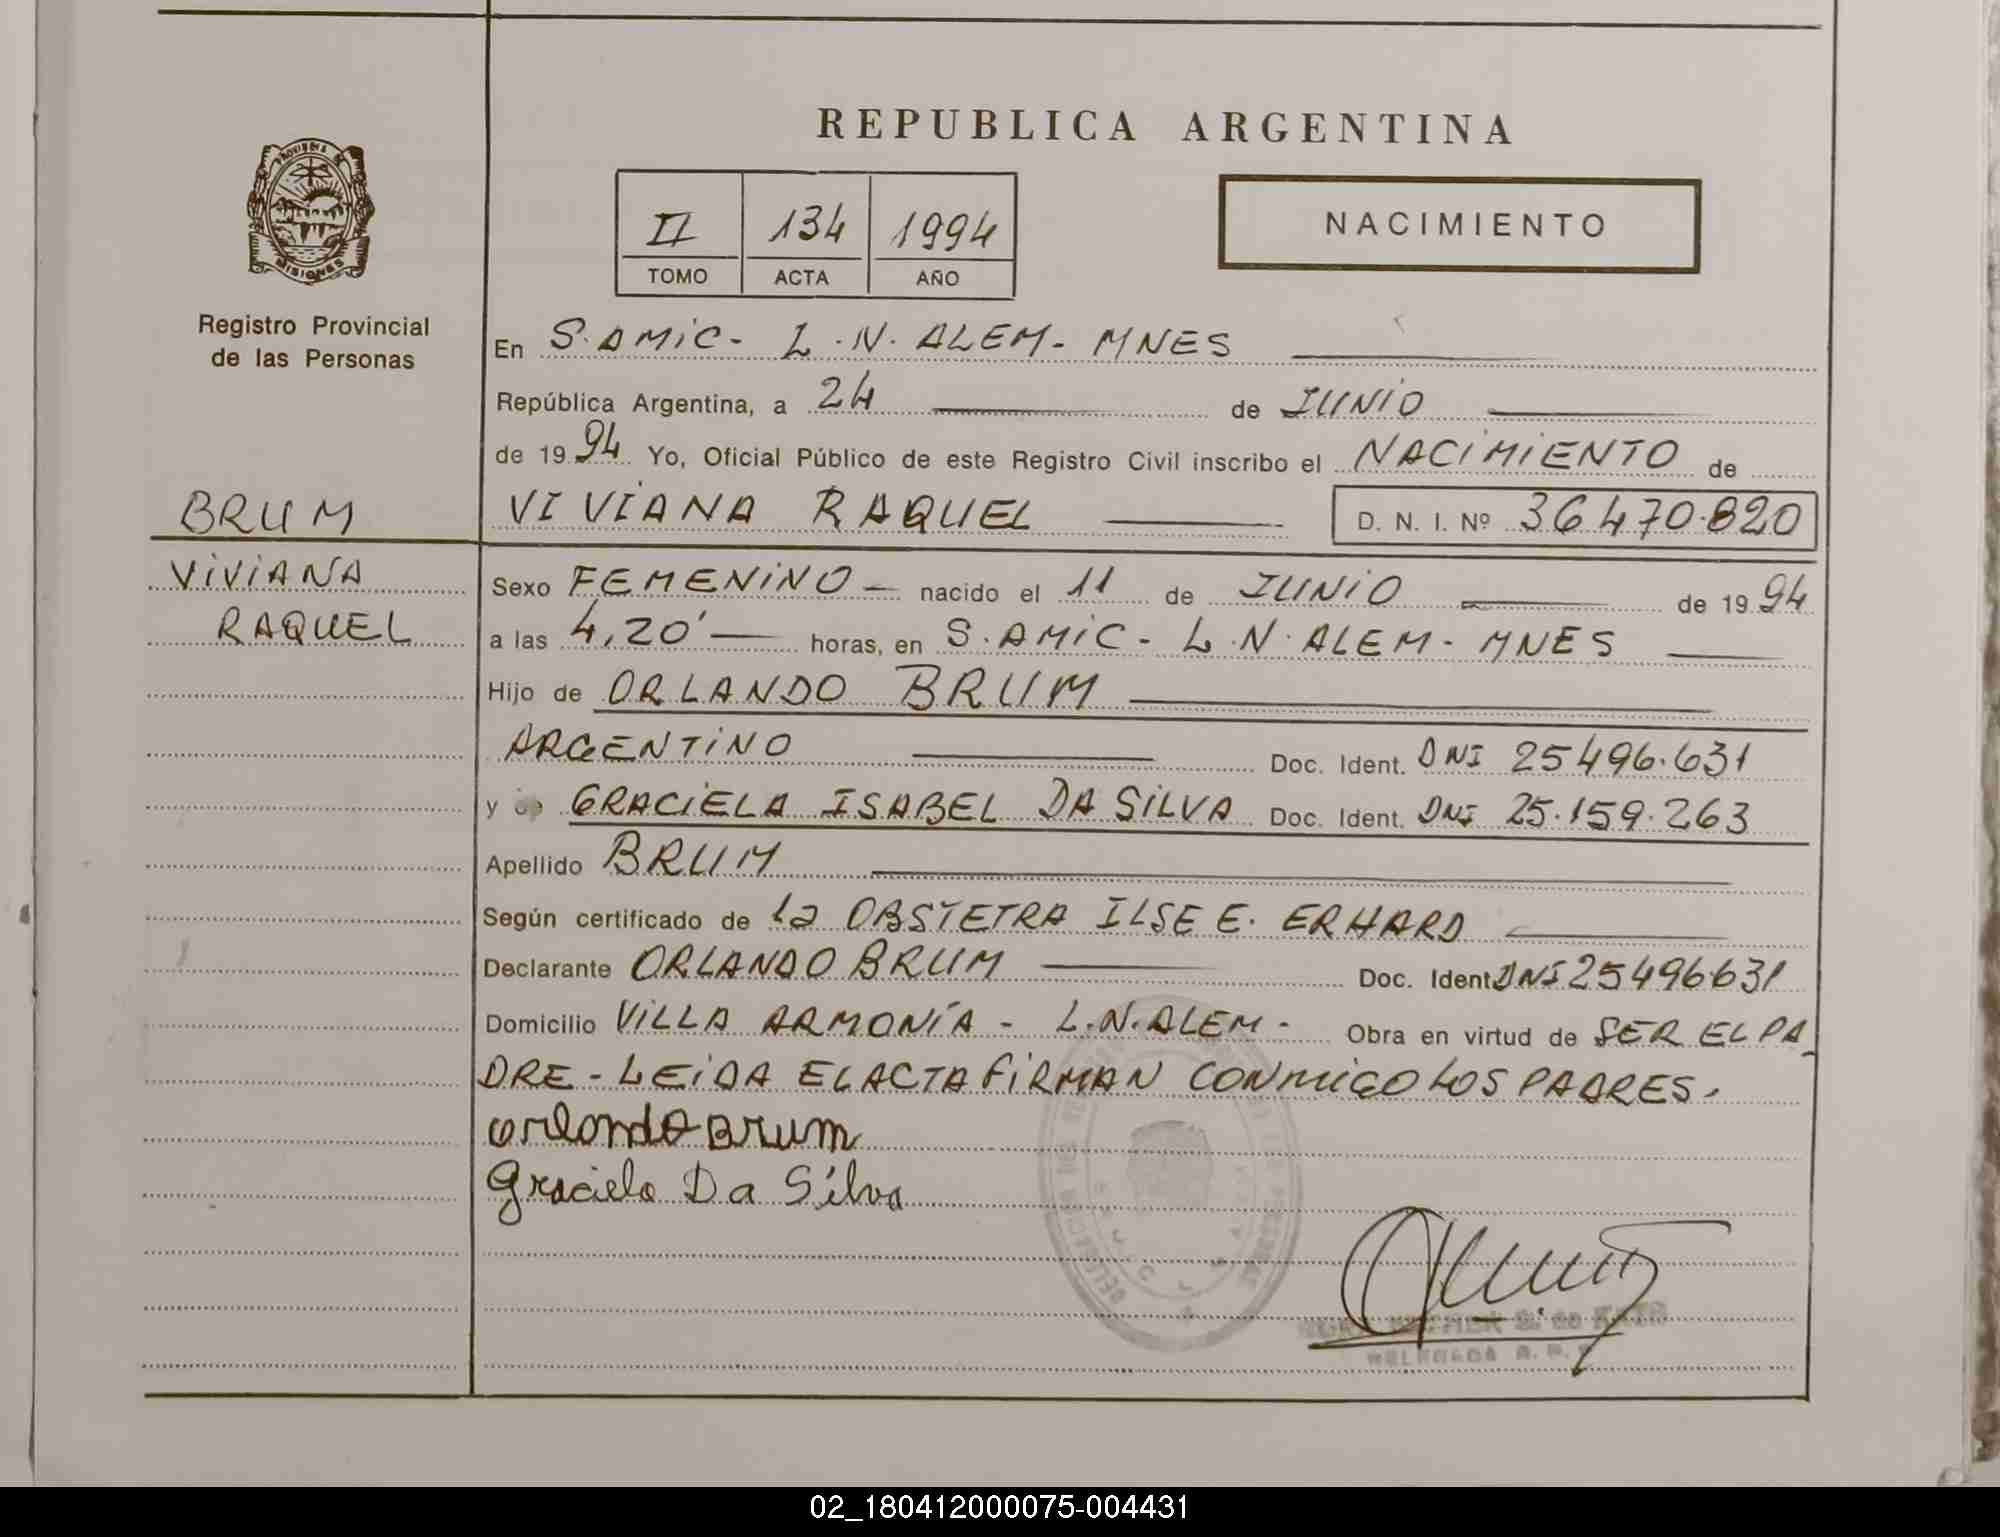 REPUBLICA ARGENTINA
PROVINCIA DE
MISIONES
Registro Provincial
de las Personas
II 134 1994
TOMO ACTA AÑO
NACIMIENTO
En S. AMIC - L.N. ALEM - MNES
República Argentina, a 24 de JUNIO
de 1994 Yo, Oficial Público de este Registro Civil inscribo el NACIMIENTO de
BRUM
VIVIANA RAQUEL D. N. I. Nº 36470.820
VIVIANA
RAQUEL
Sexo FEMENINO — nacido el 11 de JUNIO de 1994
a las 4,20' — horas, en S. AMIC - L.N. ALEM - MNES
Hijo de ORLANDO BRUM
ARGENTINO Doc. Ident. DNI 25496.631
y de GRACIELA ISABEL DA SILVA Doc. Ident. DNI 25.159.263
Apellido BRUM
Según certificado de la OBSTETRA ILSE E. ERHARD
Declarante ORLANDO BRUM Doc. Ident DNI 25496631
Domicilio VILLA ARMONÍA - L.N. ALEM - Obra en virtud de SER EL PA
DRE - LEIDA EL ACTA FIRMAN CONMIGO LOS PADRES.
orlando BRUM
Graciela Da Silva
02_180412000075-004431